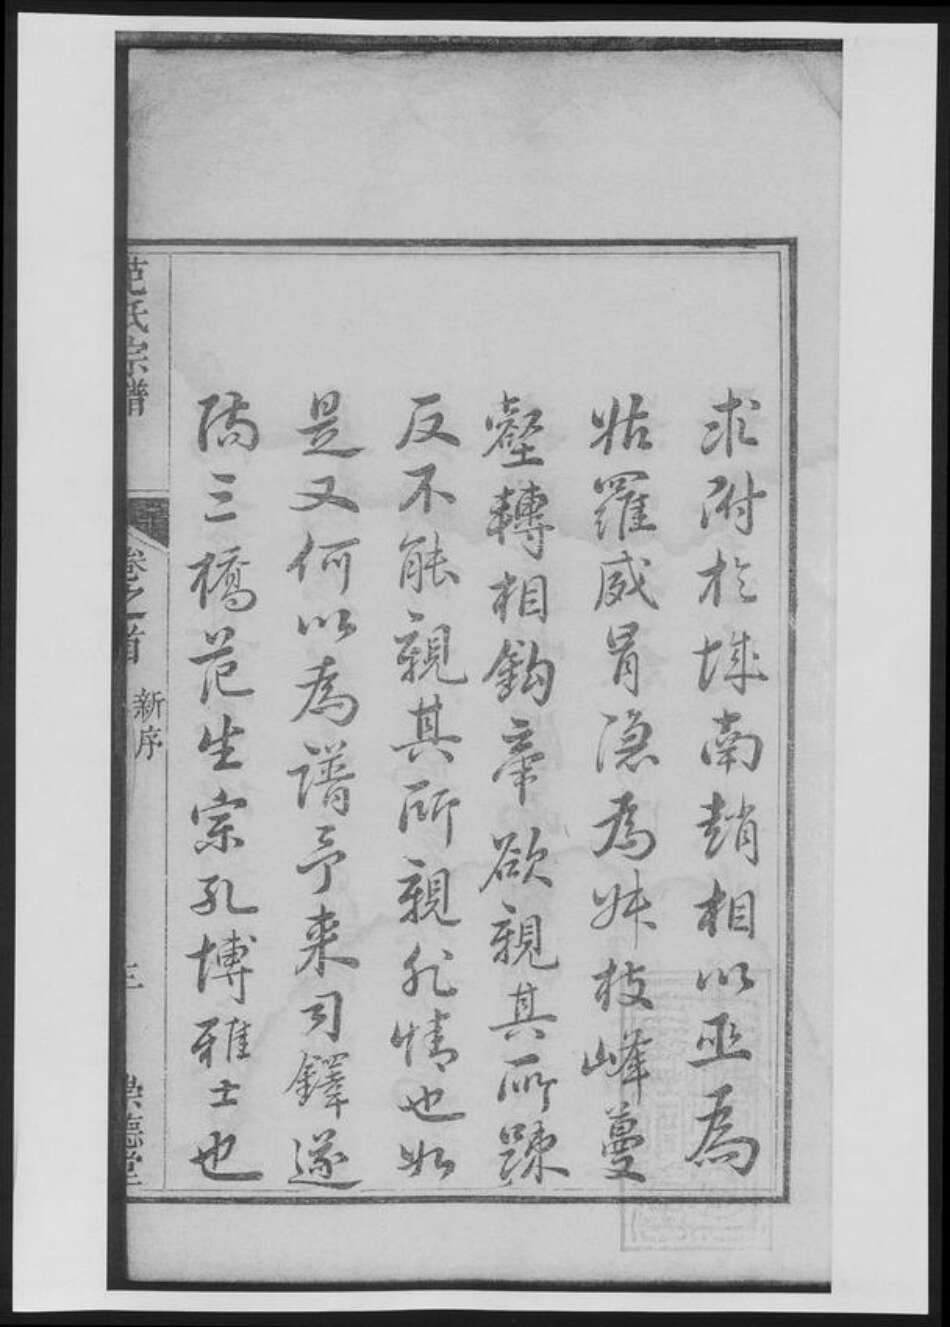 求附於城南趙相以巫為
姑羅威冒隱為妹枝峰蔓
壑轉相鈎牽欲親其所踈
反不能親其所親非情也如
是又何以為譜予来司鐸遂
陽三橋范生宗孔博雅士也
范氏宗譜
卷之首
新序
三
崇德堂